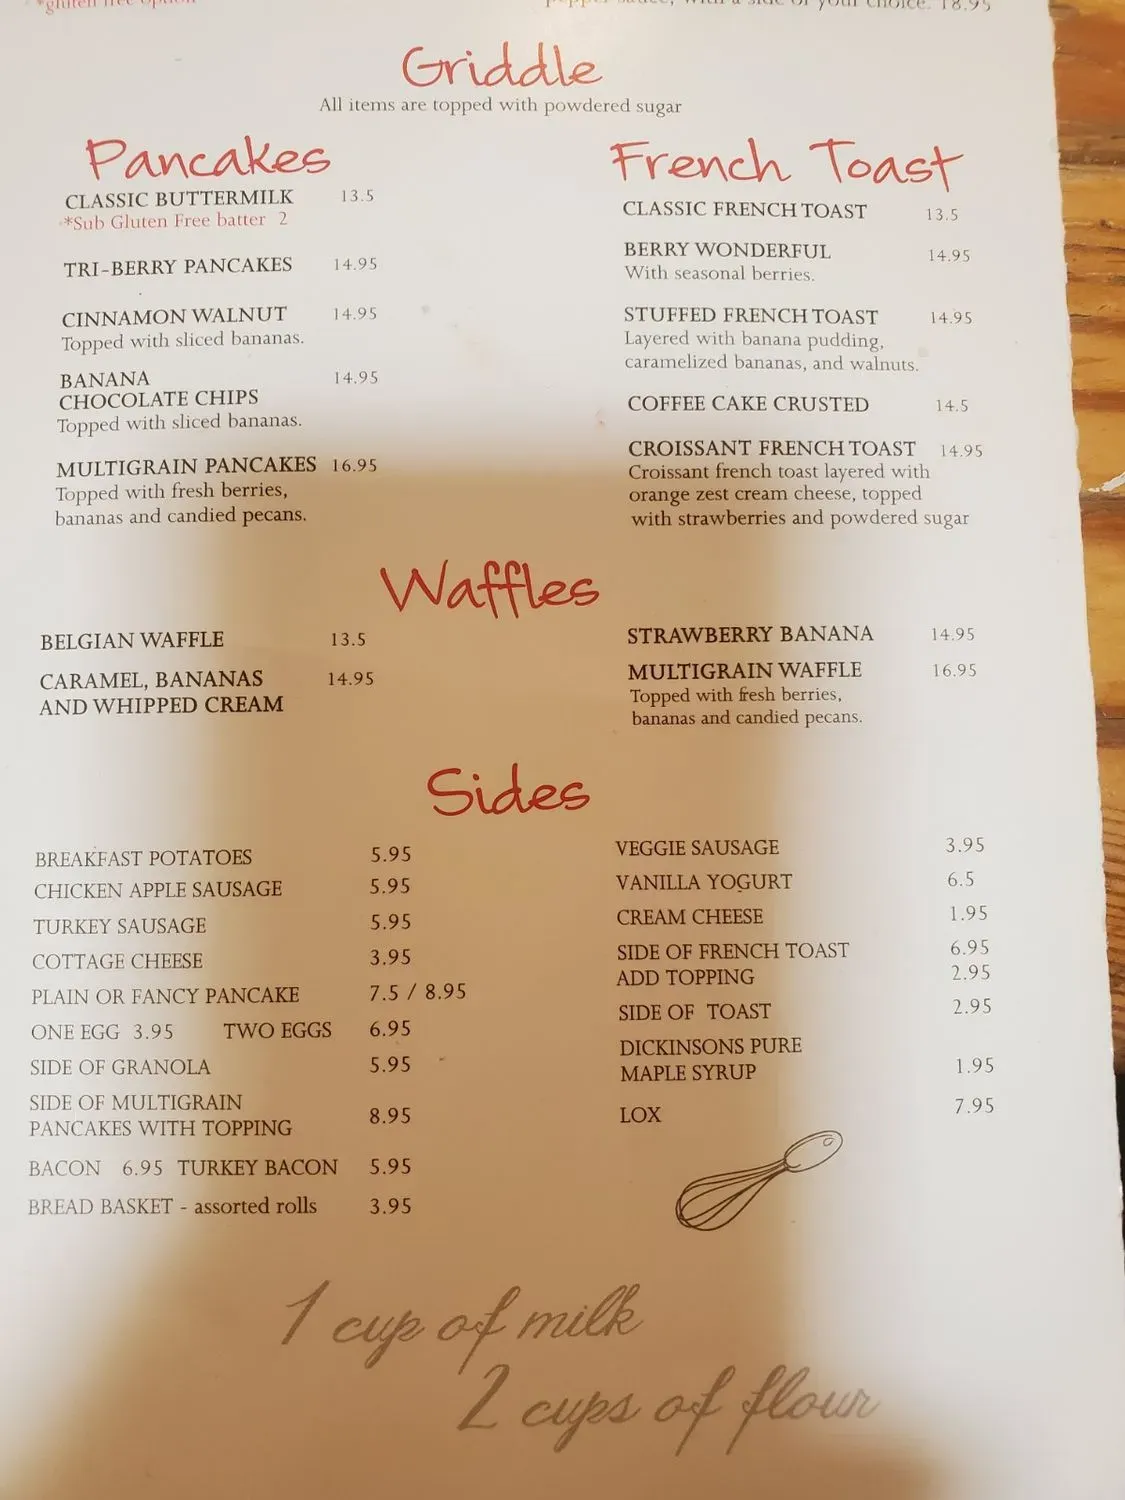 *gluten free option
pepper sauce, with a side of your choice. 18.95
Griddle
All items are topped with powdered sugar
Pancakes
CLASSIC BUTTERMILK 13.5
*Sub Gluten Free batter 2
TRI-BERRY PANCAKES 14.95
CINNAMON WALNUT 14.95
Topped with sliced bananas.
BANANA 14.95
CHOCOLATE CHIPS
Topped with sliced bananas.
MULTIGRAIN PANCAKES 16.95
Topped with fresh berries,
bananas and candied pecans.
French Toast
CLASSIC FRENCH TOAST 13.5
BERRY WONDERFUL 14.95
With seasonal berries.
STUFFED FRENCH TOAST 14.95
Layered with banana pudding,
caramelized bananas, and walnuts.
COFFEE CAKE CRUSTED 14.5
CROISSANT FRENCH TOAST 14.95
Croissant french toast layered with
orange zest cream cheese, topped
with strawberries and powdered sugar
Waffles
BELGIAN WAFFLE 13.5
CARAMEL, BANANAS 14.95
AND WHIPPED CREAM
STRAWBERRY BANANA 14.95
MULTIGRAIN WAFFLE 16.95
Topped with fresh berries,
bananas and candied pecans.
Sides
BREAKFAST POTATOES 5.95
CHICKEN APPLE SAUSAGE 5.95
TURKEY SAUSAGE 5.95
COTTAGE CHEESE 3.95
PLAIN OR FANCY PANCAKE 7.5 / 8.95
ONE EGG 3.95 TWO EGGS 6.95
SIDE OF GRANOLA 5.95
SIDE OF MULTIGRAIN
PANCAKES WITH TOPPING 8.95
BACON 6.95 TURKEY BACON 5.95
BREAD BASKET - assorted rolls 3.95
VEGGIE SAUSAGE 3.95
VANILLA YOGURT 6.5
CREAM CHEESE 1.95
SIDE OF FRENCH TOAST 6.95
ADD TOPPING 2.95
SIDE OF TOAST 2.95
DICKINSONS PURE
MAPLE SYRUP 1.95
LOX 7.95
1 cup of milk
2 cups of flour